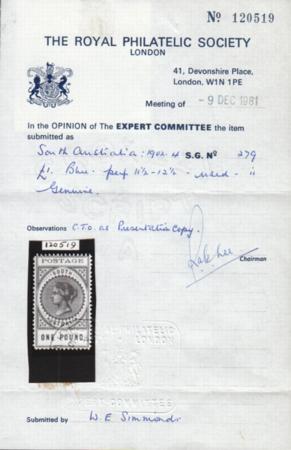 Nº 120519
THE ROYAL PHILATELIC SOCIETY
LONDON
41, Devonshire Place,
London, W1N 1PE
Meeting of - 9 DEC 1981
In the OPINION of The EXPERT COMMITTEE the item
submitted as
South Australia: 1902-4 S.G. Nº 279
£1 Blue - perf 11½-12½ - used - is
Genuine.
Observations C.T.O. as Presentation Copy.
Chairman
120519
POSTAGE
SOUTH
ONE POUND
PHILATELIC
LONDON
EXPERT COMMITTEE
Submitted by W. E. Simmonds